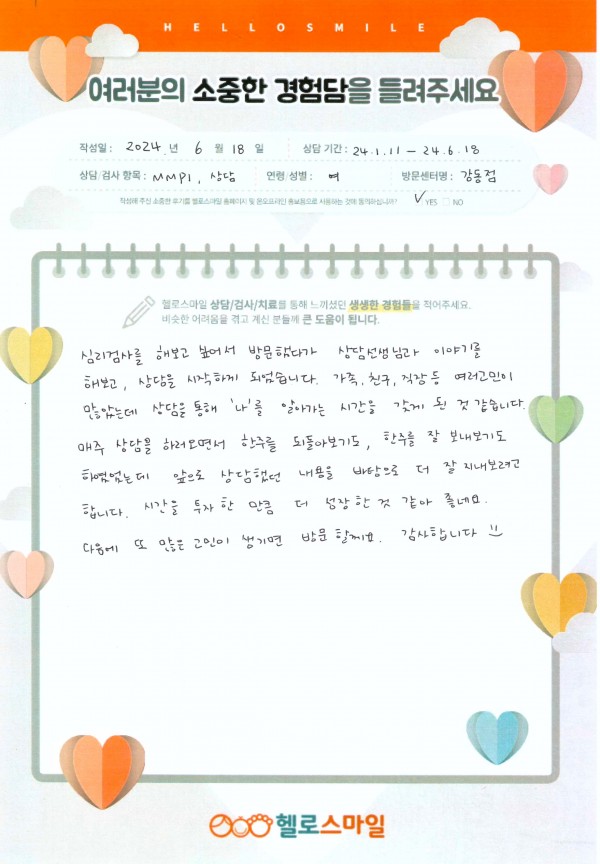 HELLOSMILE
여러분의 소중한 경험담을 들려주세요
작성일 : 2024. 년 6 월 18 일 상담 기간 : 24.1.11 - 24.6.18
상담/검사 항목 : MMPI, 상담 연령/성별 : 여 방문센터명 : 강동점
작성해 주신 소중한 후기를 헬로스마일 홈페이지 및 온오프라인 홍보용으로 사용하는 것에 동의하십니까? ✓ YES □ NO
헬로스마일 상담/검사/치료를 통해 느끼셨던 생생한 경험들을 적어주세요.
비슷한 어려움을 겪고 계신 분들께 큰 도움이 됩니다.
심리검사를 해보고 싶어서 방문했다가 상담선생님과 이야기를
해보고, 상담을 시작하게 되었습니다. 가족, 친구, 직장 등 여러고민이
많았는데 상담을 통해 '나'를 알아가는 시간을 갖게 된 것 같습니다.
매주 상담을 하러오면서 한주를 되돌아보기도, 한주를 잘 보내보기도
하였었는데 앞으로 상담했던 내용을 바탕으로 더 잘 지내보려고
합니다. 시간을 투자한 만큼 더 성장한 것 같아 좋네요.
다음에 또 많은 고민이 생기면 방문할께요. 감사합니다 :)
헬로스마일